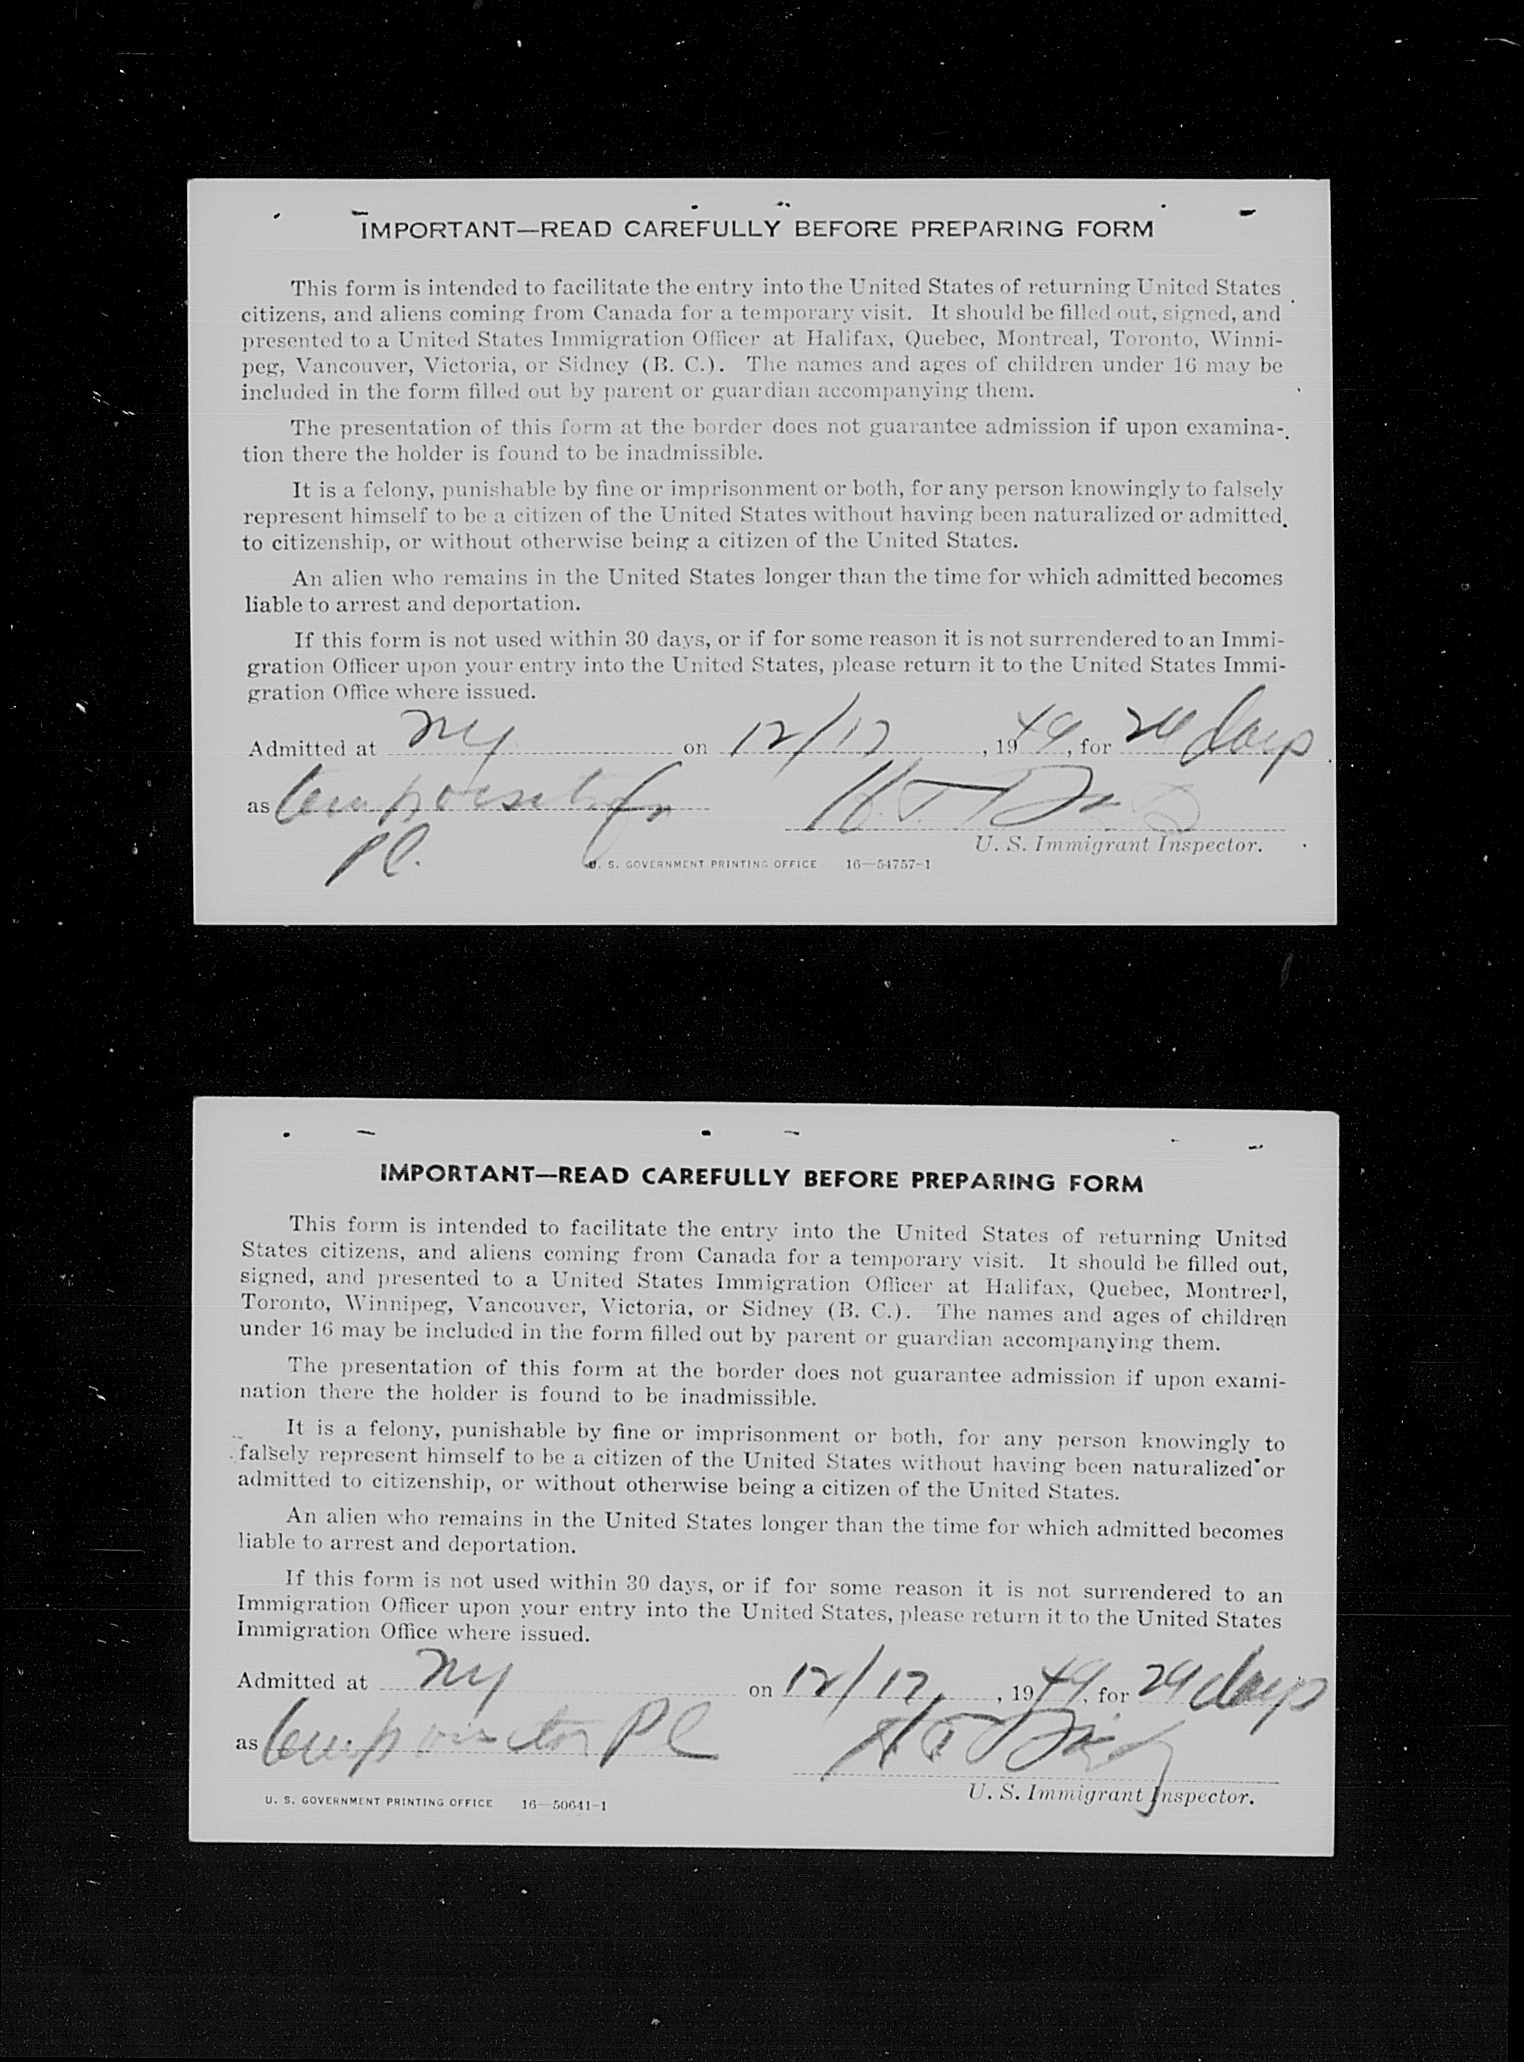 IMPORTANT—READ CAREFULLY BEFORE PREPARING FORM
This form is intended to facilitate the entry into the United States of returning United States
citizens, and aliens coming from Canada for a temporary visit. It should be filled out, signed, and
presented to a United States Immigration Officer at Halifax, Quebec, Montreal, Toronto, Winni-
peg, Vancouver, Victoria, or Sidney (B. C.). The names and ages of children under 16 may be
included in the form filled out by parent or guardian accompanying them.
The presentation of this form at the border does not guarantee admission if upon examina-
tion there the holder is found to be inadmissible.
It is a felony, punishable by fine or imprisonment or both, for any person knowingly to falsely
represent himself to be a citizen of the United States without having been naturalized or admitted
to citizenship, or without otherwise being a citizen of the United States.
An alien who remains in the United States longer than the time for which admitted becomes
liable to arrest and deportation.
If this form is not used within 30 days, or if for some reason it is not surrendered to an Immi-
gration Officer upon your entry into the United States, please return it to the United States Immi-
gration Office where issued.
Admitted at NY on 12/17, 1949, for 29 days
as Temp visitor
PL.
U. S. Immigrant Inspector.
U. S. GOVERNMENT PRINTING OFFICE 16—54757-1
IMPORTANT—READ CAREFULLY BEFORE PREPARING FORM
This form is intended to facilitate the entry into the United States of returning United
States citizens, and aliens coming from Canada for a temporary visit. It should be filled out,
signed, and presented to a United States Immigration Officer at Halifax, Quebec, Montreal,
Toronto, Winnipeg, Vancouver, Victoria, or Sidney (B. C.). The names and ages of children
under 16 may be included in the form filled out by parent or guardian accompanying them.
The presentation of this form at the border does not guarantee admission if upon exami-
nation there the holder is found to be inadmissible.
It is a felony, punishable by fine or imprisonment or both, for any person knowingly to
falsely represent himself to be a citizen of the United States without having been naturalized or
admitted to citizenship, or without otherwise being a citizen of the United States.
An alien who remains in the United States longer than the time for which admitted becomes
liable to arrest and deportation.
If this form is not used within 30 days, or if for some reason it is not surrendered to an
Immigration Officer upon your entry into the United States, please return it to the United States
Immigration Office where issued.
Admitted at NY on 12/17, 1949, for 29 days
as Temp visitor PL
U. S. Immigrant Inspector.
U. S. GOVERNMENT PRINTING OFFICE 16—50641-1